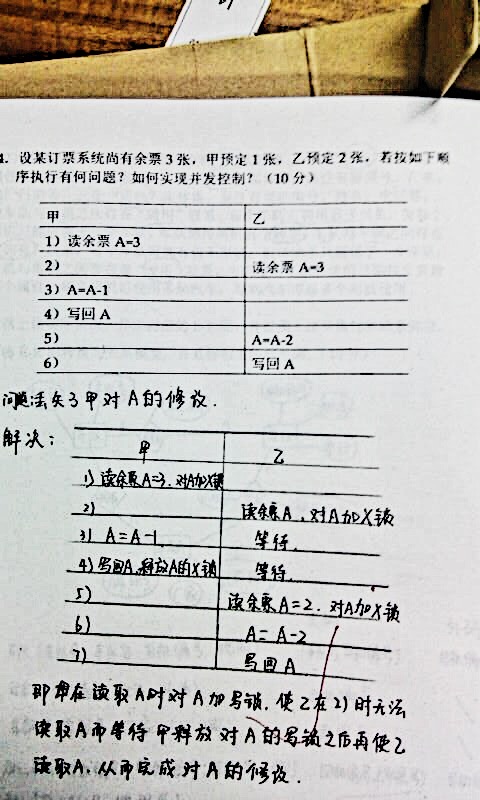 4. 设某订票系统尚有余票3张，甲预定1张，乙预定2张，若按如下顺
序执行有何问题？如何实现并发控制？（10分）
甲 乙
1）读余票 A=3
2） 读余票 A=3
3）A=A-1
4）写回 A
5） A=A-2
6） 写回 A
问题：丢失了甲对A的修改.
解决：
甲 乙
1) 读余票A=3. 对A加X锁
2) 读余票A. 对A加X锁
3) A=A-1. 等待.
4) 写回A, 释放A的X锁 等待.
5) 读余票A=2. 对A加X锁
6) A=A-2
7) 写回A
即甲在读取A时对A加写锁, 使乙在2)时无法
读取A而等待甲释放对A的写锁之后再使乙
读取A, 从而完成对A的修改.